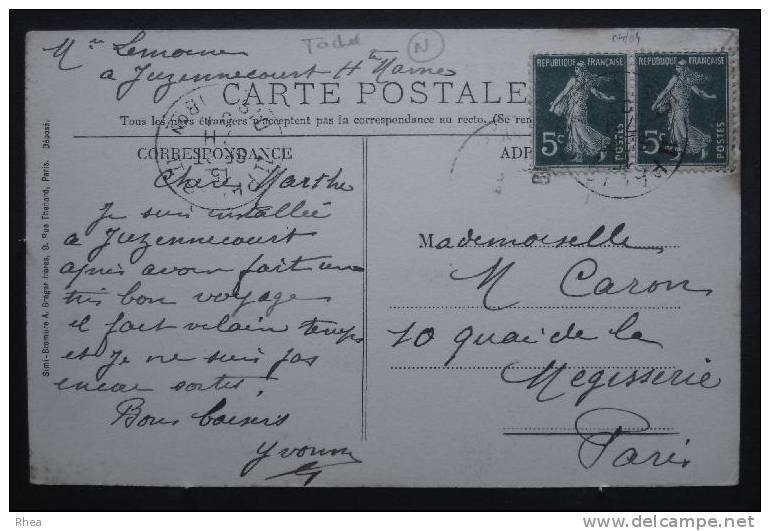 Mme Lemoine
à Juzennecourt Hte Marne
N
CARTE POSTALE
Tous les pays étrangers n'acceptent pas la correspondance au recto. (Se ren
CORRESPONDANCE
ADR
REPUBLIQUE FRANÇAISE
5c
POSTES
REPUBLIQUE FRANÇAISE
5c
POSTES
Chère Marthe
Je suis installée
à Juzennecourt
après avoir fait un
très bon voyage
il fait vilain temps
et je ne suis pas
encore sortie.
Bons baisers
Yvonne
Mademoiselle
M Caron
10 quai de la
Megisserie
Paris
Simi-Bromure A. Breger frères, 9, Rue Thénard, Paris. Déposé.
Rhea
delcampe.net